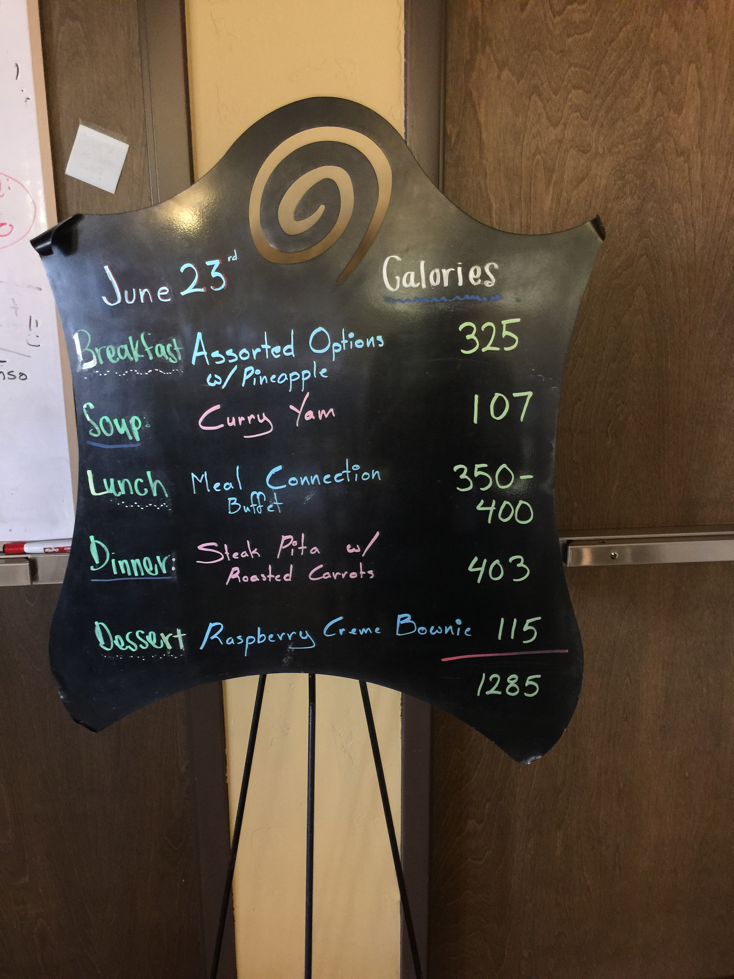 June 23rd Calories
Breakfast Assorted Options 325
w/ Pineapple
Soup: Curry Yam 107
Lunch Meal Connection 350-
Buffet 400
Dinner: Steak Pita w/ 403
Roasted Carrots
Dessert Raspberry Creme Bownie 115
1285